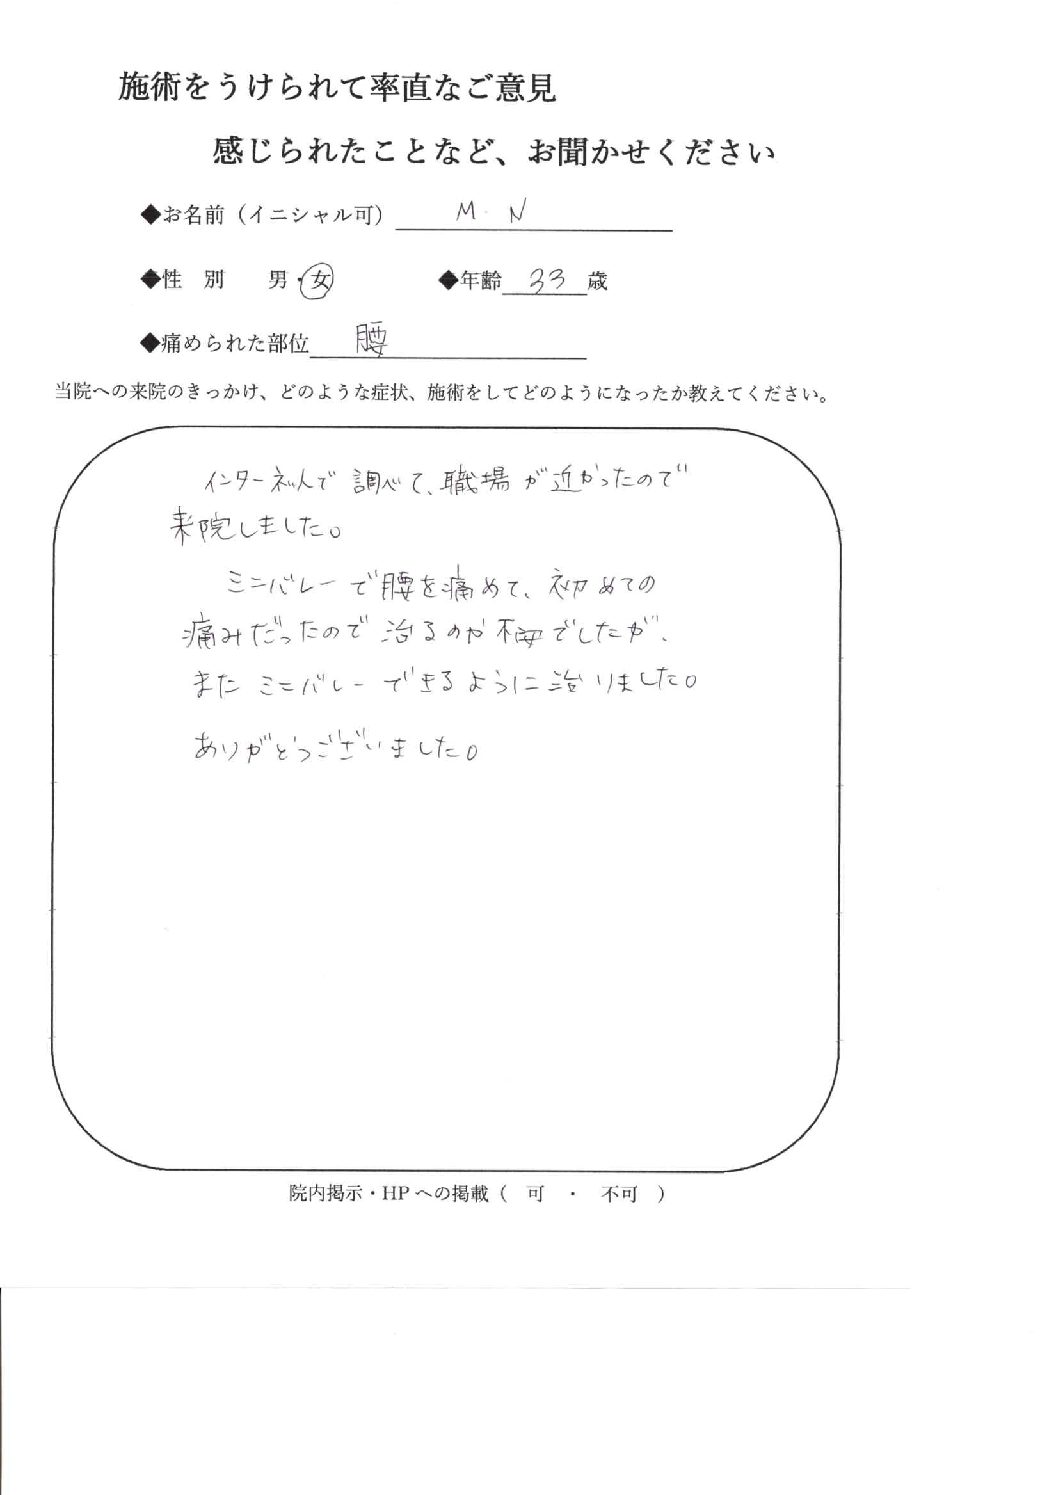 施術をうけられて率直なご意見
感じられたことなど、お聞かせください
◆お名前（イニシャル可） M・N
◆性　別　　男・女　　　　◆年齢 33 歳
◆痛められた部位 腰
当院への来院のきっかけ、どのような症状、施術をしてどのようになったか教えてください。
インターネットで 調べて、職場が近かったので
来院しました。
ミニバレーで腰を痛めて、初めての
痛みだったので 治るのか不安でしたが、
また ミニバレーできるように治りました。
ありがとうございました。
院内掲示・HPへの掲載（　可　・　不可　）